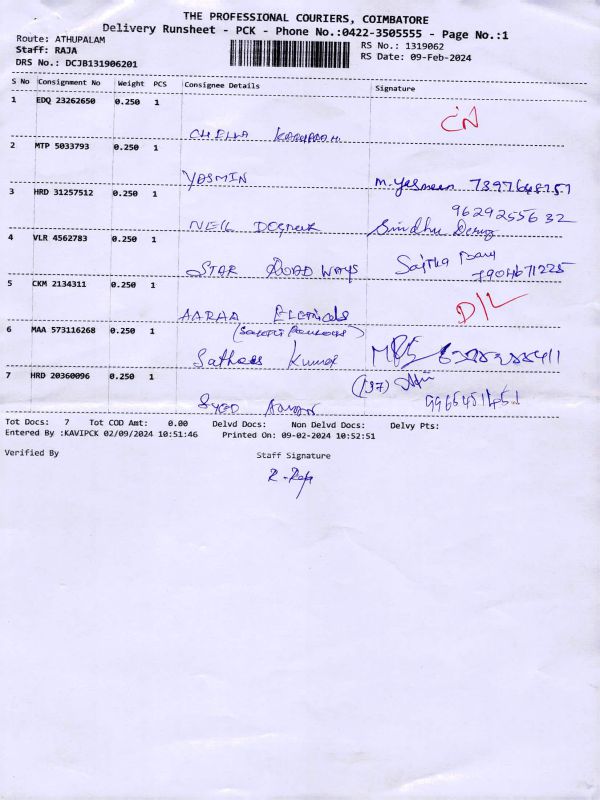 THE PROFESSIONAL COURIERS, COIMBATORE
Delivery Runsheet - PCK - Phone No.:0422-3505555 - Page No.:1
Route: ATHUPALAM
Staff: RAJA
DRS No.: DCJB131906201
RS No.: 1319062
RS Date: 09-Feb-2024
S No Consignment No Weight PCS Consignee Details Signature
1 EDQ 23262650 0.250 1
CHELLA
2 MTP 5033793 0.250 1
YASMIN m. Yasmeen
3 HRD 31257512 0.250 1
9629255632
Sindhu
4 VLR 4562783 0.250 1
STAR ROAD WAYS
5 CKM 2134311 0.250 1
D/L
AARAA
6 MAA 573116268 0.250 1
Sathees Kumar
7 HRD 20360096 0.250 1
(137)
SYED 9965451451
Tot Docs: 7 Tot COD Amt: 0.00 Delvd Docs: Non Delvd Docs: Delvy Pts:
Entered By :KAVIPCK 02/09/2024 10:51:46 Printed On: 09-02-2024 10:52:51
Verified By Staff Signature
R. Raja